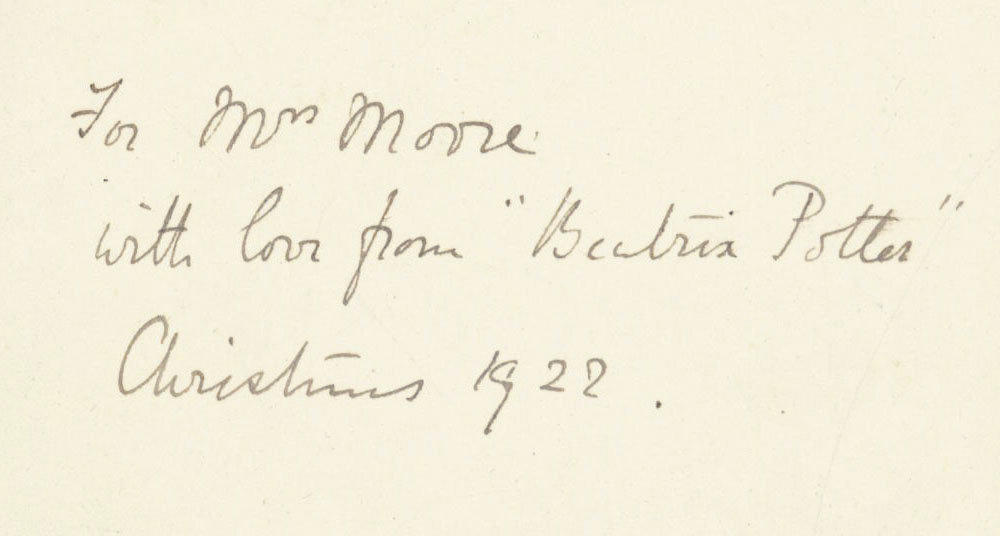 For Mrs Moore
with love from "Beatrix Potter"
Christmas 1922.